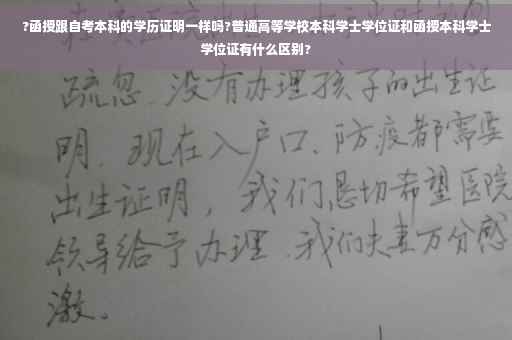 ?函授跟自考本科的学历证明一样吗?普通高等学校本科学士学位证和函授本科学士
学位证有什么区别?
疏忽、没有办理孩子的出生证
明. 现在入户口、防疫都需要
出生证明，我们恳切希望医院
领导给予办理、我们夫妻万分感
激.